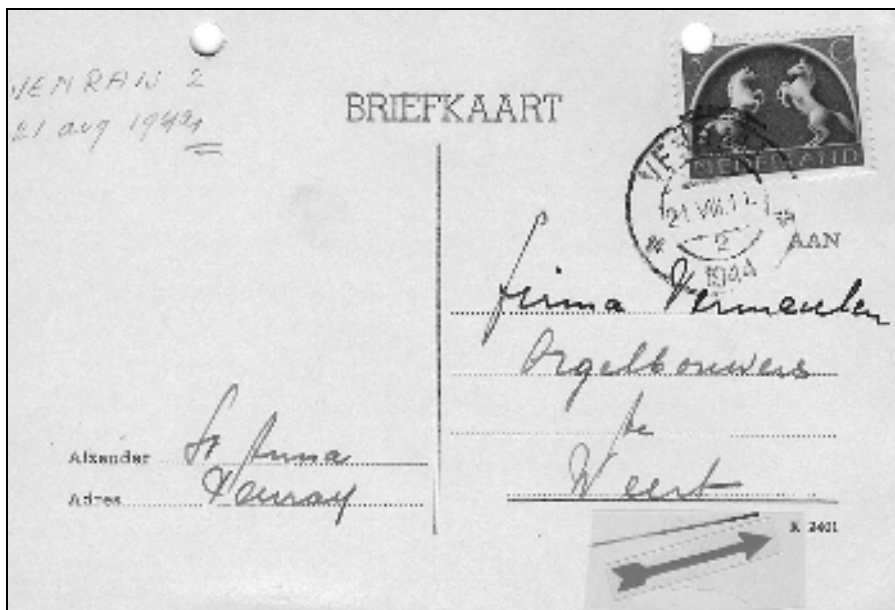 VENRAIJ 2
21 aug 1944
BRIEFKAART
NEDERLAND
21 VIII 17
2
1944
AAN
Firma Vermeulen
Orgelbouwers
te
Weert
Afzender St Anna
Adres Venray
K 2401